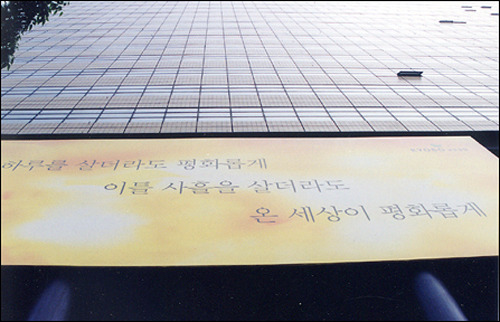 하루를 살더라도 평화롭게
이틀 사흘을 살더라도
온 세상이 평화롭게